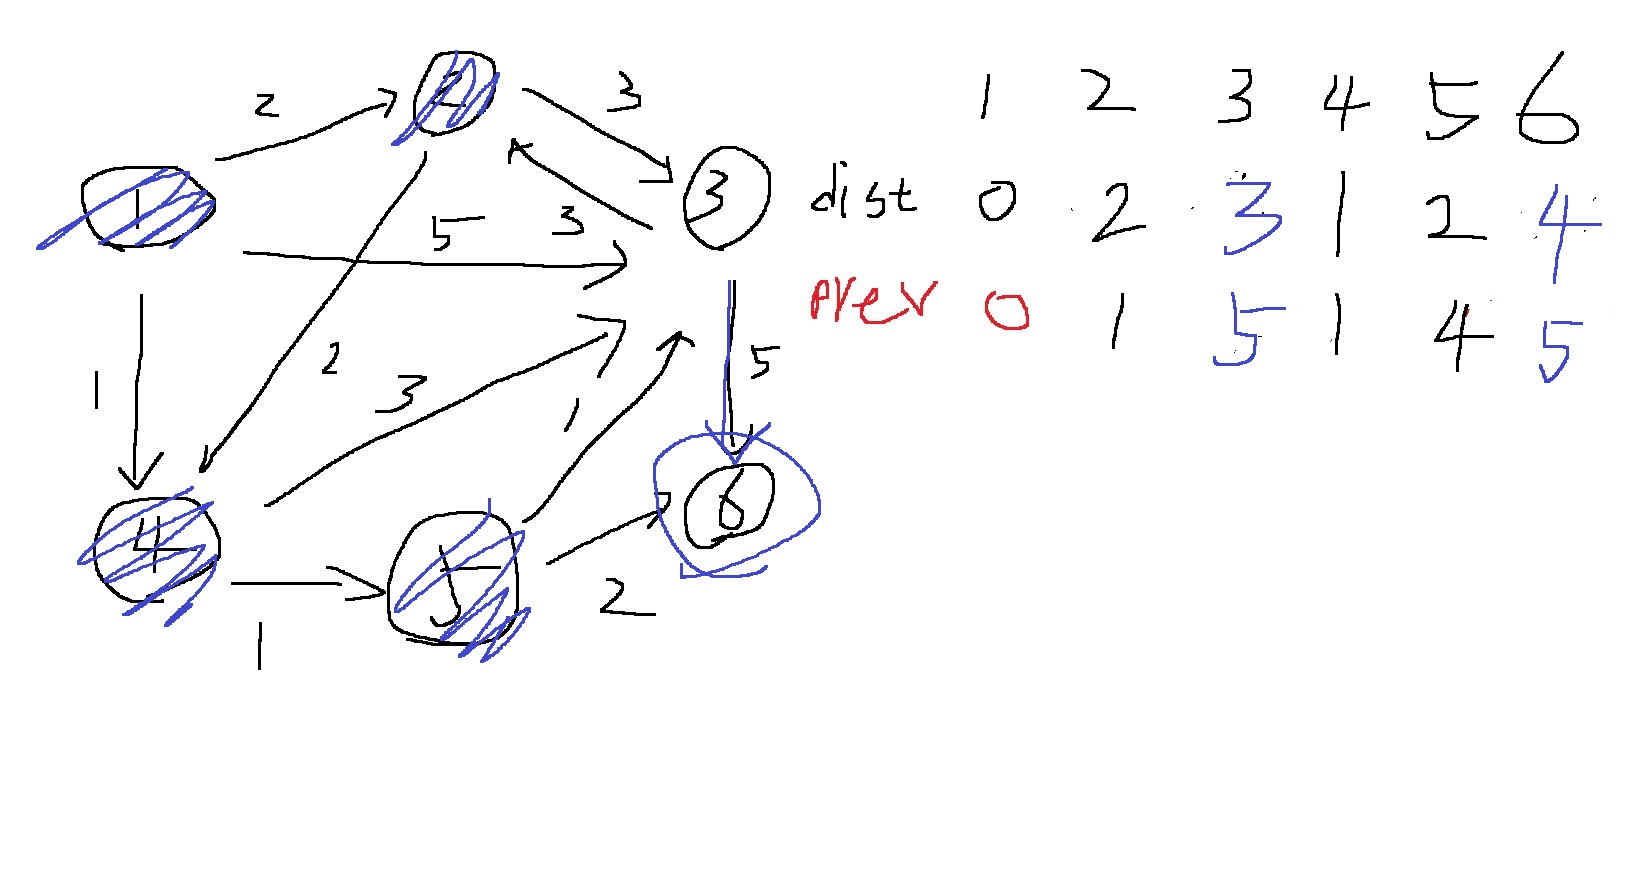 1 2 3 4 5 6
dist 0 2 3 1 2 4
prev 0 1 5 1 4 5
2
2
3
1
3
5
3
2
3
1
5
1
4
5
6
2
1